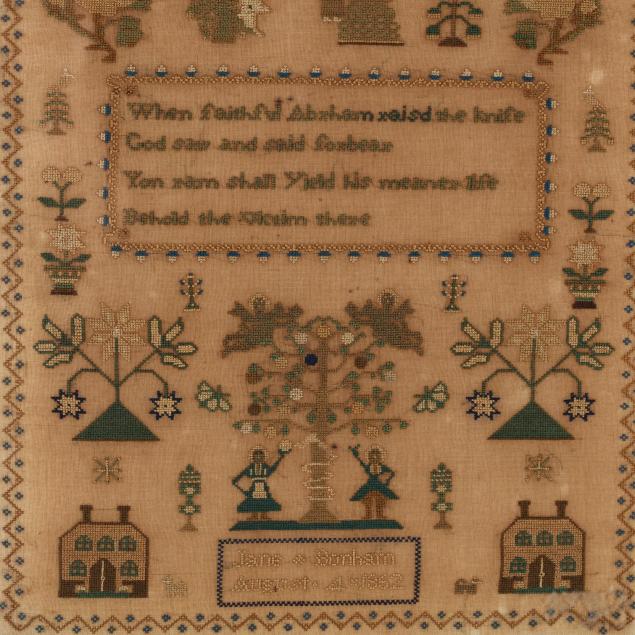 When faithful Abraham raisd the knife
God saw and said forbear
Yon ram shall Yield his meaner life
Behold the Victim there
Jane Bonham
August 1862